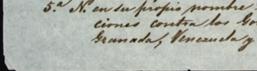 5.ª N. en su propio nombre
ciones contra los Go
Granada, Venezuela y